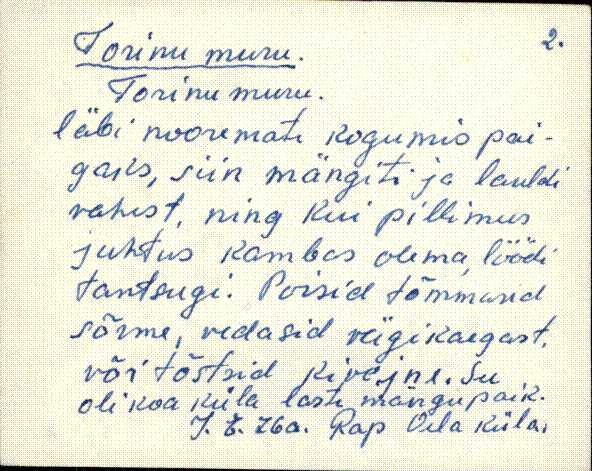 Torinu muru. 2.
Torinu muru.
läbi nooremate kogumis pai-
gaks, siin mängiti ja lauldi
vahest, ning kui pillimus
juhtus kambas olema, löödi
tantsugi. Poisid tõmmasid
sõrme, vedasid vägikaegast,
või tõstsid kive jne. Su
oli koa küla laste mängupaik.
J. E. 76a. Rap Oela küla.